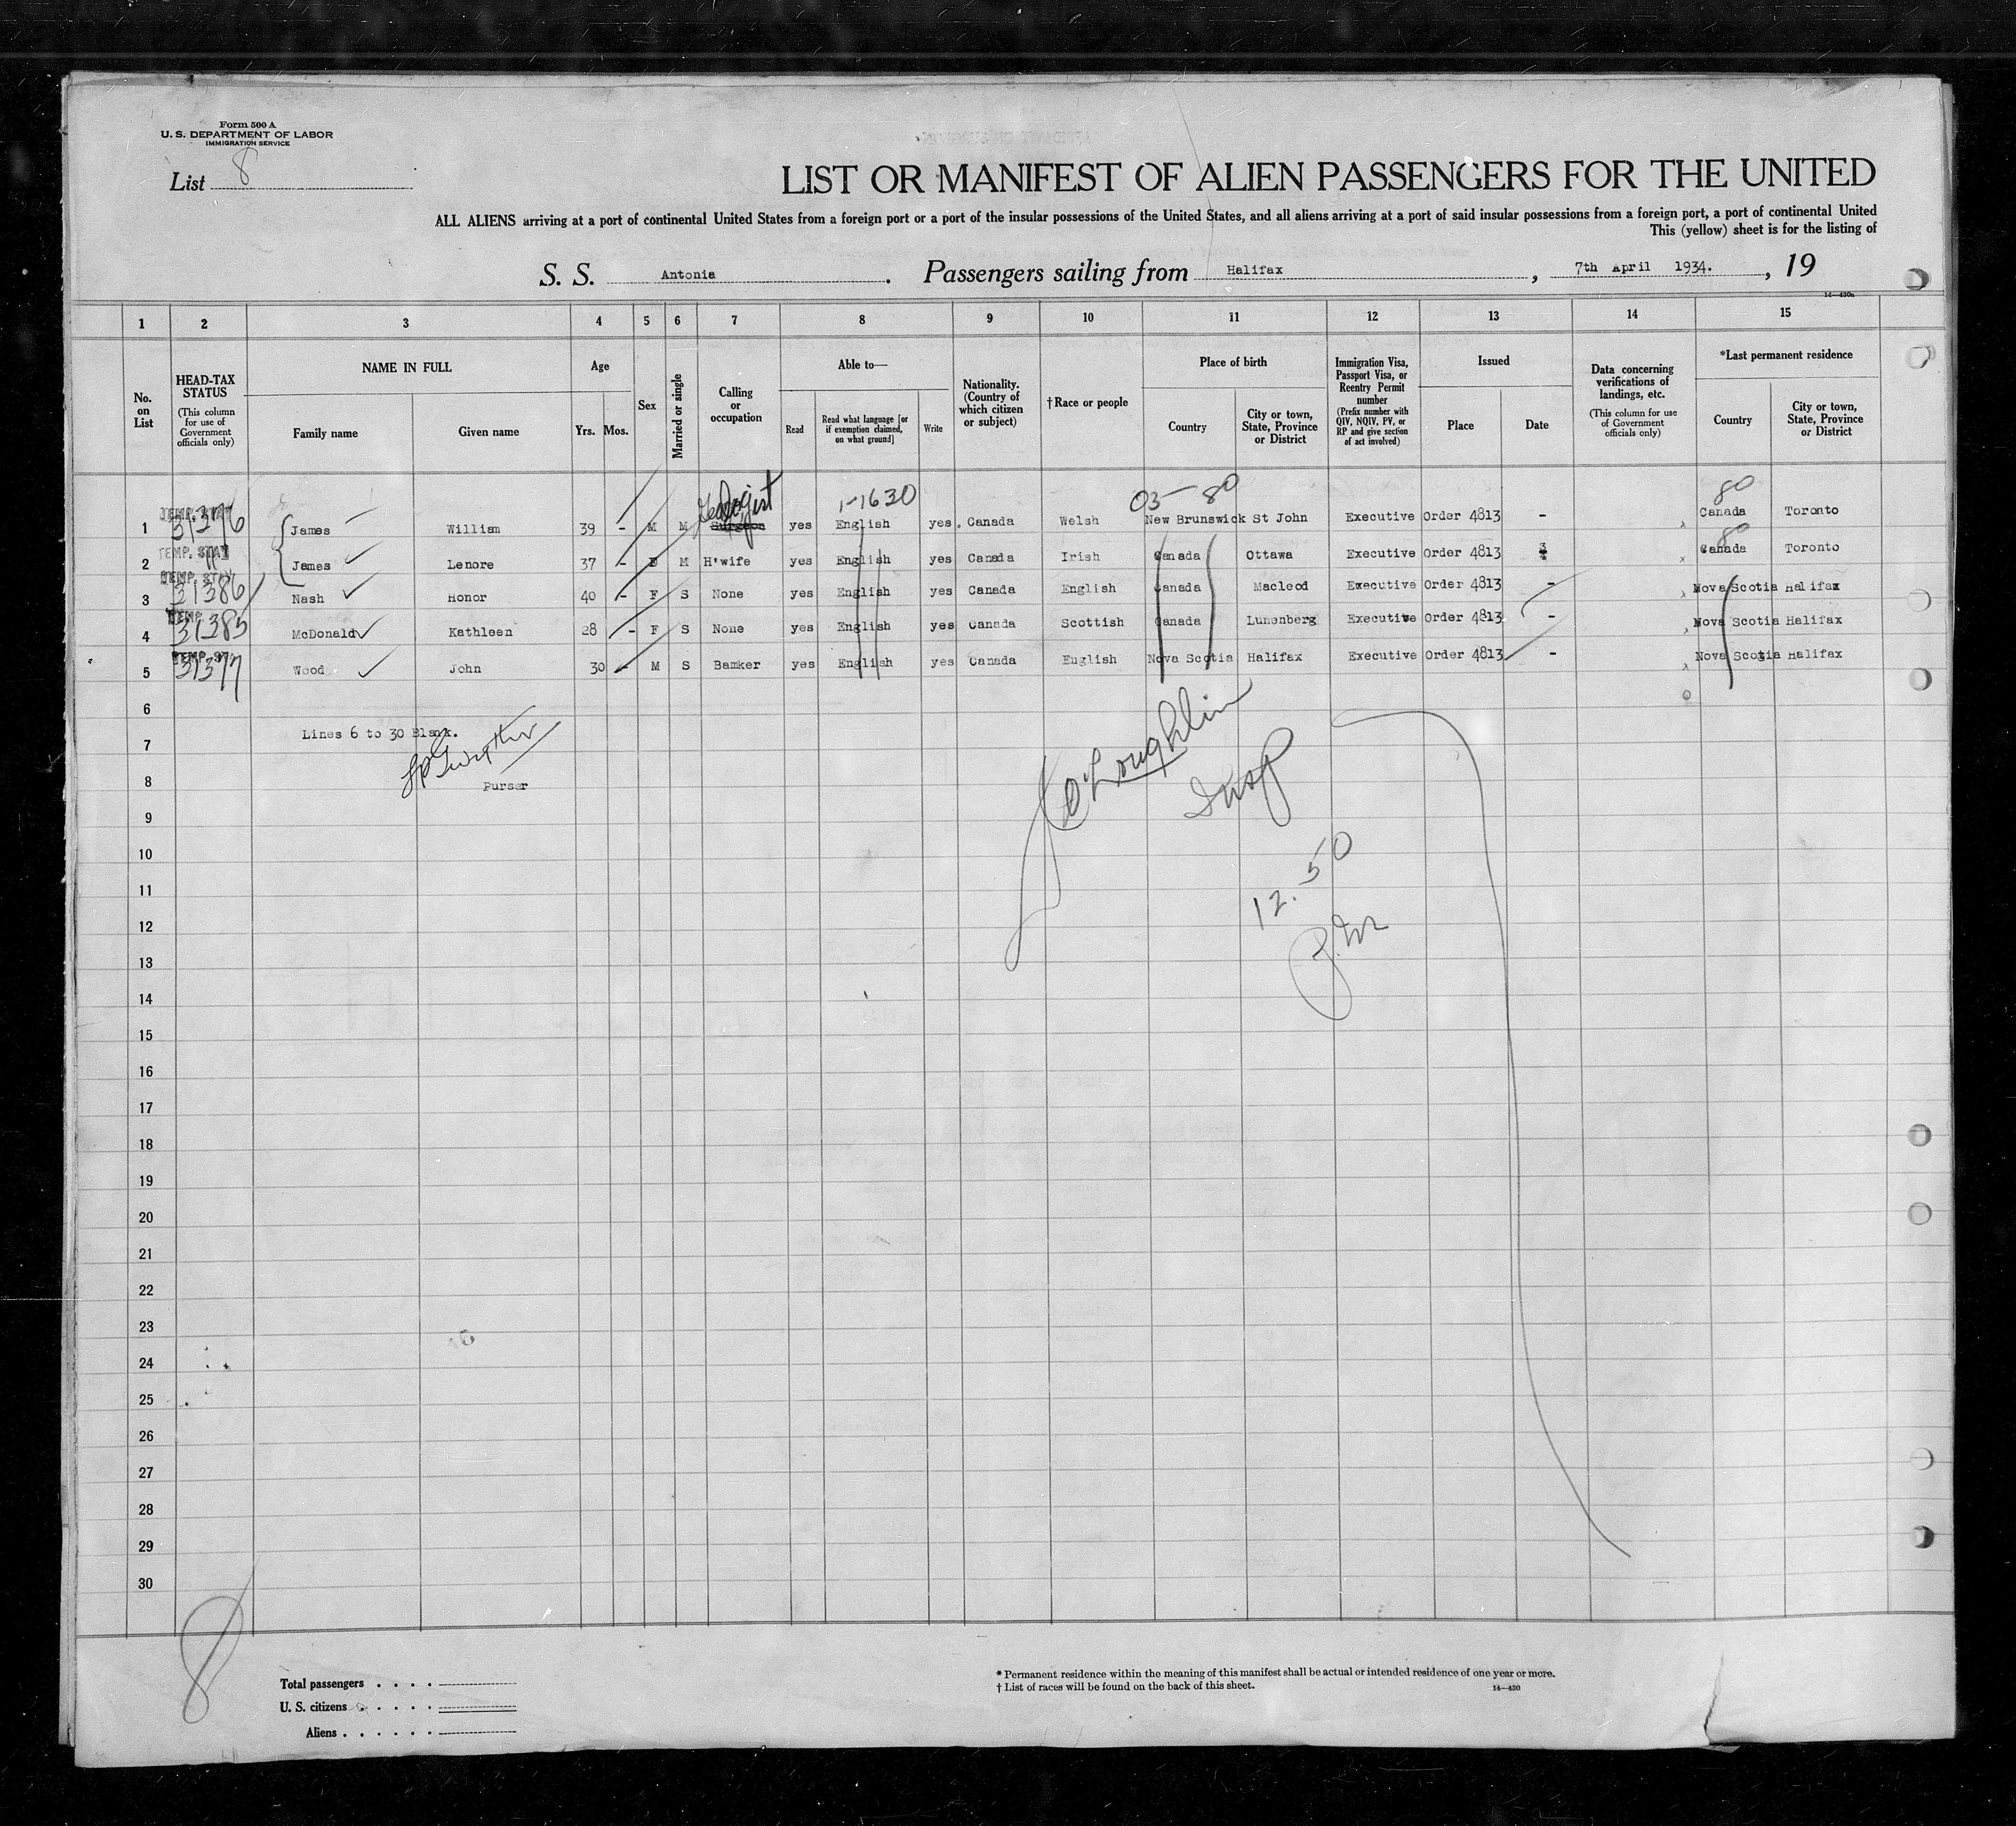 Form 500 A
U. S. DEPARTMENT OF LABOR
IMMIGRATION SERVICE
List 8
LIST OR MANIFEST OF ALIEN PASSENGERS FOR THE UNITED
ALL ALIENS arriving at a port of continental United States from a foreign port or a port of the insular possessions of the United States, and all aliens arriving at a port of said insular possessions from a foreign port, a port of continental United
This (yellow) sheet is for the listing of
S. S. Antonia. Passengers sailing from Halifax, 7th April 1934., 19
14—430a
1 2 3 4 5 6 7 8 9 10 11 12 13 14 15
No. on List
HEAD-TAX STATUS
(This column for use of Government officials only)
NAME IN FULL
Family name
Given name
Age
Yrs. Mos.
Sex
Married or single
Calling or occupation
Able to—
Read
Read what language [or if exemption claimed, on what ground]
Write
Nationality. (Country of which citizen or subject)
† Race or people
Place of birth
Country
City or town, State, Province or District
Immigration Visa, Passport Visa, or Reentry Permit number
(Prefix number with QIV, NQIV, PV, or RP and give section of act involved)
Issued
Place
Date
Data concerning verifications of landings, etc.
(This column for use of Government officials only)
*Last permanent residence
Country
City or town, State, Province or District
Geologist 1-1630 03-80 80
1 TEMP. STAY 31376 James William 39 - M M Surgeon yes English yes. Canada Welsh New Brunswick St John Executive Order 4813 - Canada Toronto
80
2 TEMP. STAY James Lenore 37 - M H'wife yes English yes Canada Irish Canada Ottawa Executive Order 4813 Canada Toronto
3 TEMP. STAY 31386 Nash Honor 40 - F S None yes English yes Canada English Canada Macleod Executive Order 4813 - Nova Scotia Halifax
4 TEMP. 31385 McDonald Kathleen 28 - F S None yes English yes Canada Scottish Canada Lunenberg Executive Order 4813 - Nova Scotia Halifax
5 TEMP. 31377 Wood John 30 - M S Bamker yes English yes Canada English Nova Scotia Halifax Executive Order 4813 - Nova Scotia Halifax
6
7 Lines 6 to 30 Blank.
8 Purser
O'Loughlin
Insp
9
10
11
12.50
12
P.M
13
14
15
16
17
18
19
20
21
22
23
24
25
26
27
28
29
30
8
Total passengers . . . .
U. S. citizens . . . . .
Aliens . . . . . .
* Permanent residence within the meaning of this manifest shall be actual or intended residence of one year or more.
† List of races will be found on the back of this sheet.
14—430